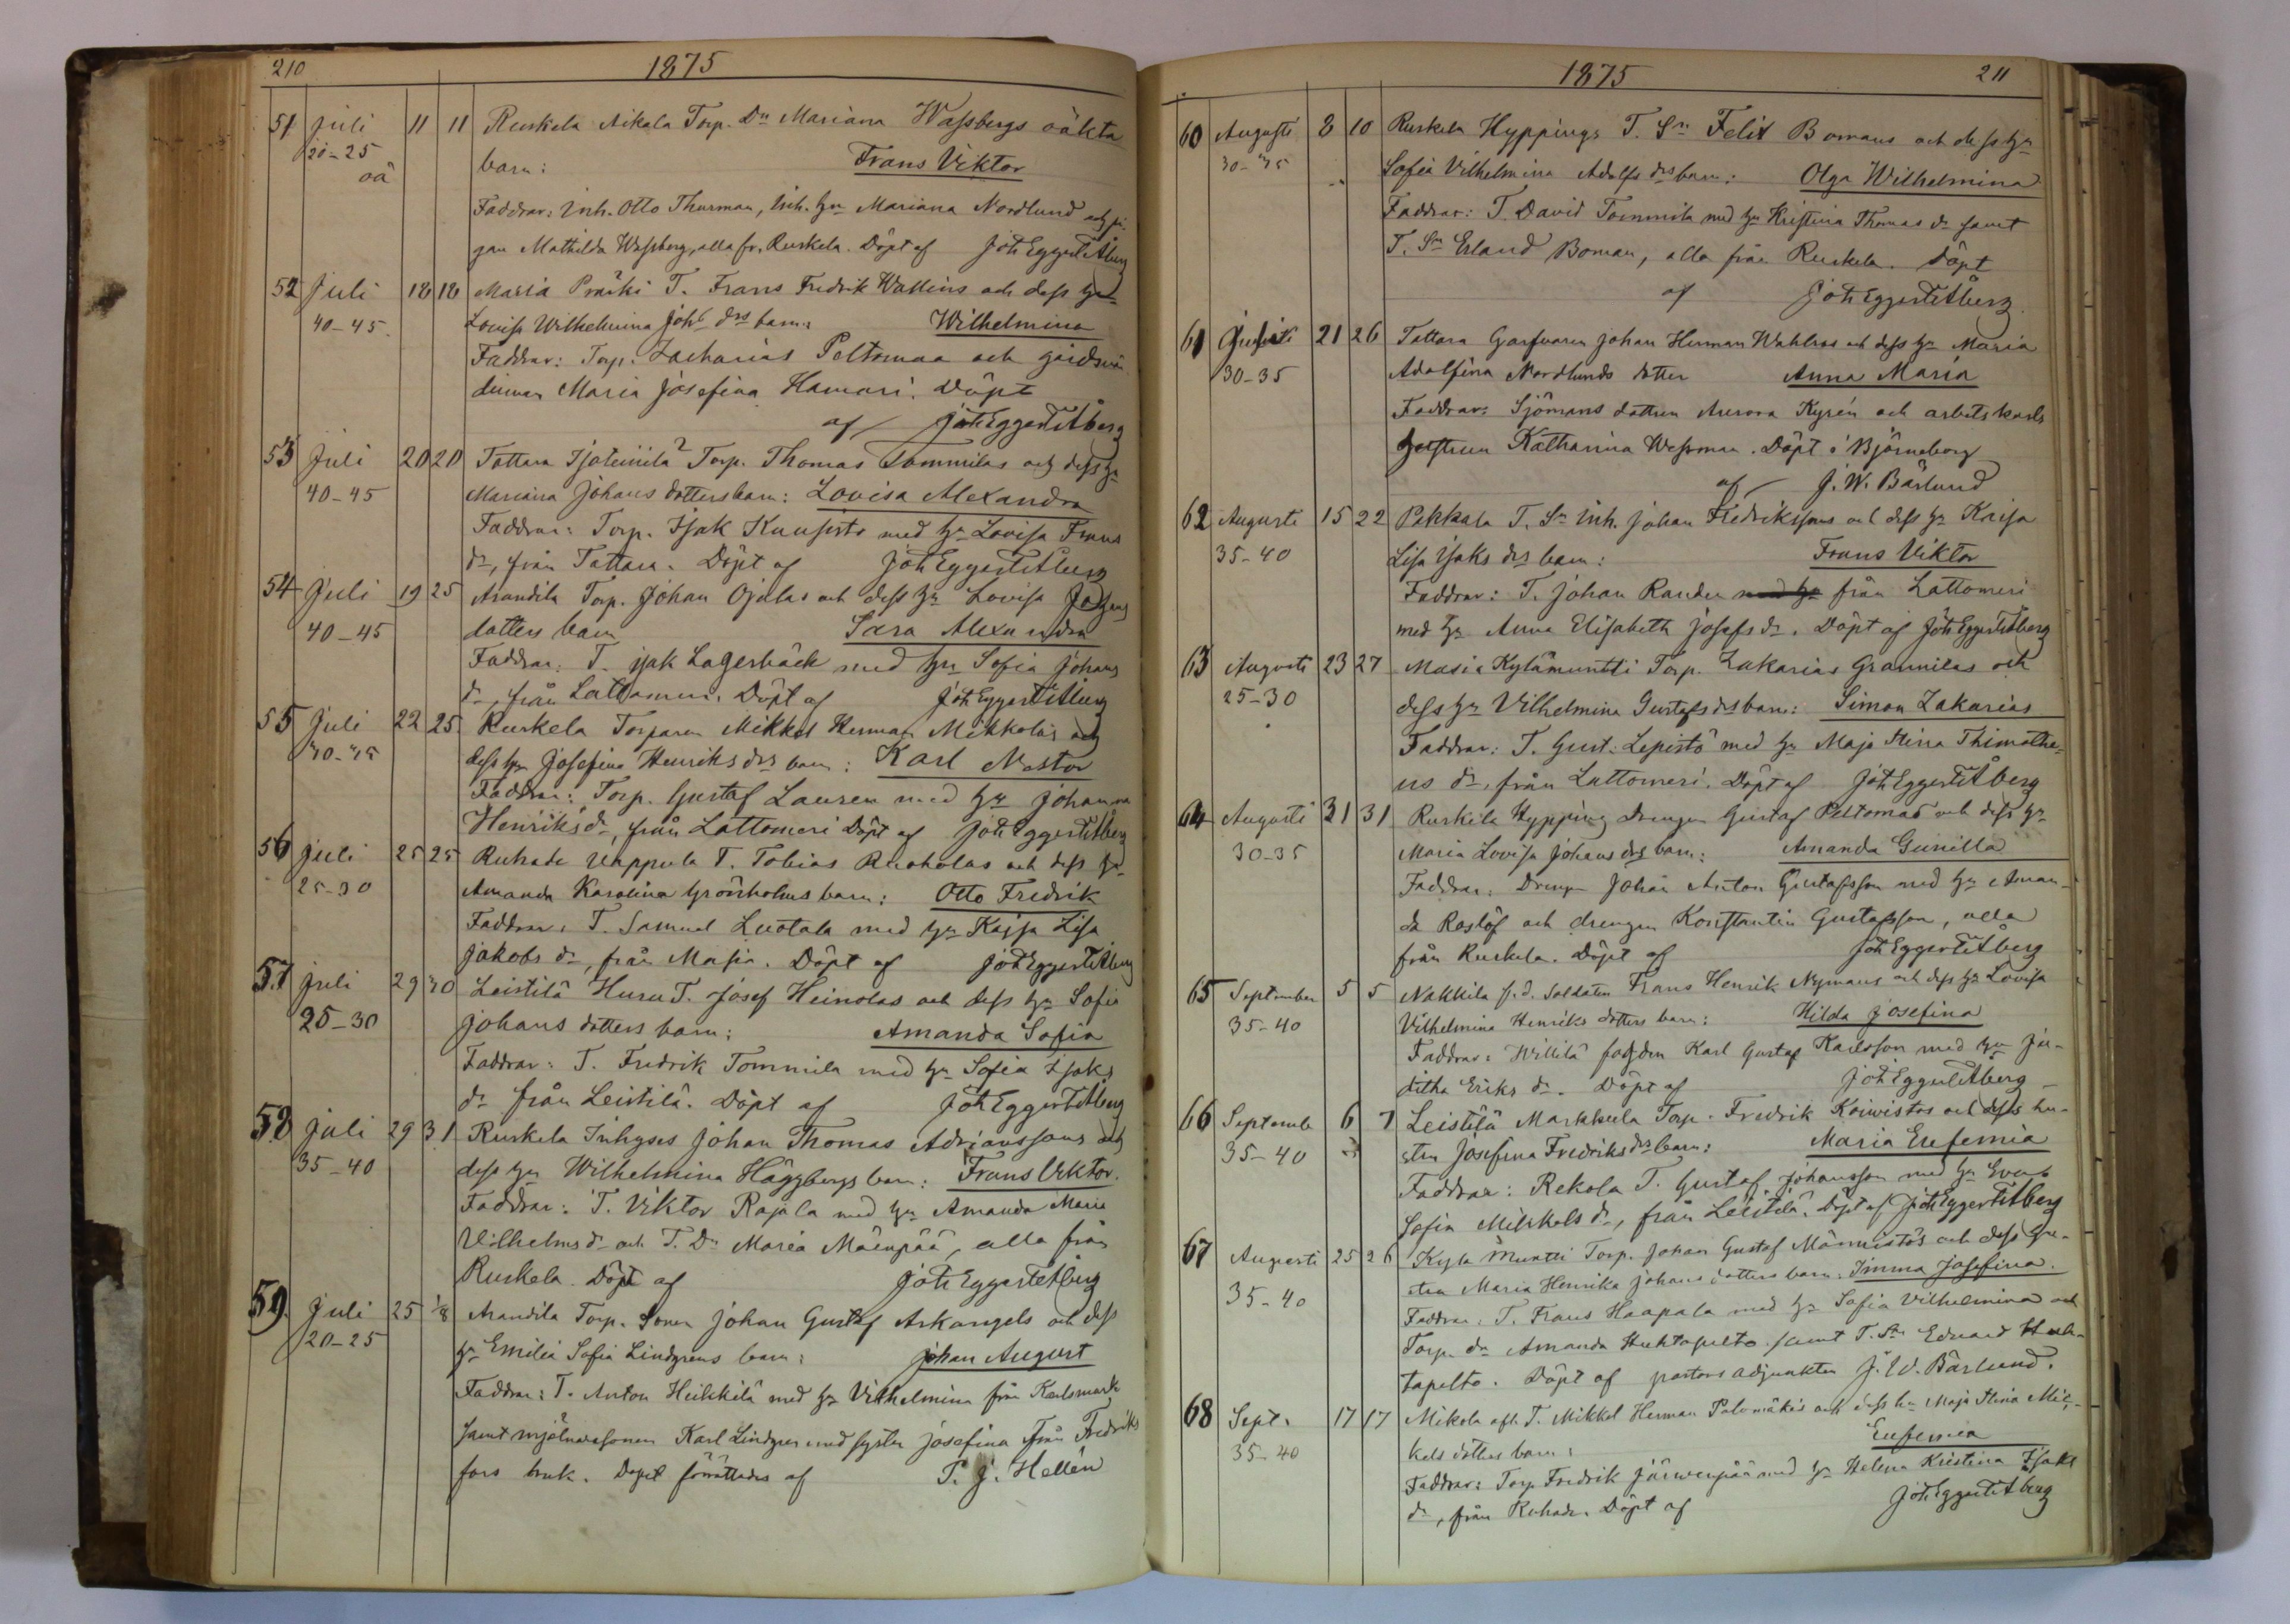 210
1875
51 Juli 11 11 Ruskela Aikala Torp. Dn Mariana Wassbergs oäkta
20-25
oä
barn: Frans Viktor
Faddrar: Inh. Otto Thurman, Inh. hn Mariana Nordlund och pi-
gan Mathilda Wassberg, alla fr. Ruskela. Döpt af Joh Eggert Åberg
52 Juli 18 18 Masia Präski T. Frans Fredrik Wallins och dess h
40-45 Lovisa Wilhelmina Johs drs barn: Wilhelmina
Faddrar: Torp. Zacharias Peltomaa och
Maria Josefina Hamari. Döpt
af Joh Eggert Åberg
53 Juli 20 20 Tattara Torp. Thomas Tommilas och dess h
40-45 Mariana Johans dotters barn: Lovisa Alexandra
Faddrar: Torp. Isak Kuusisto med h Lovisa Frans
dr, från Tattara. Döpt af Joh Eggert Åberg
54 Juli 19 25 Anandila Torp. Johan Ojalas och dess hn Lovisa
40-45 dotters barn Sara Alexandra
Faddrar: T. Isak Lagerbäck med hu Sofia Johans
dr, från Lattomeri. Döpt af Joh Eggert Åberg
55 Juli 22 25 Ruskela Torparen Mikkel Herman Mikkolas och
30-35 dess hn Josefina Henriks drs barn: Karl Nestor
Faddrar: Torp. Gustaf Lauren med hn Johanna
Henriks dr, från Lattomeri Döpt af Joh Eggert Åberg
56 Juli 25 25 Ruhade Uhppula T. Tobias Ruoholas och dess h
25-30 Amanda Karolina Grönholms barn: Otto Fredrik
Faddrar: T. Samuel Luotala med hn Kajsa Lisa
Jakobs dr, från Masia. Döpt af Joh Eggert Åberg
57 Juli 29 30 Leistilä Huru T. Josef Heinolas och dess hn Sofia
25-30 Johans dotters barn: Amanda Sofia
Faddrar: T. Fredrik Tommila med hn Sofia Isaks
dr från Leistilä. Döpt af Joh Eggert Åberg
58 Juli 29 31 Ruskela Inhyses Johan Thomas Adrianssons och
35-40 dess hn Wilhelmina Häggbergs barn: Frans Viktor.
Faddrar: T. Viktor Rajala med hn Amanda Maria
Vilhelms dr och T. Dr Maria Mäenpää, alla från
Ruskela. Döpt af Joh Eggert Åberg
59. Juli 25 1/8 Anandila Torp. Sonen Johan Gustaf Arkangels och dess
20-25 hn Emilia Sofia Lindgrens barn: Johan August
Faddrar: T. Anton Heikkilä med hn Vilhelmina från Karlsmark
samt mjölnaresonen Karl Lindgren med syster Josefina från Fredriks
fors bruk. Dopet förrättades af T. J. Hellén
1875
211
60 Augusti 8 10 Ruskela Hyppings T. Sn Felix Bomans och dess hn
30-35 Sofia Vilhelmina Adolfs drs barn: Olga Wilhelmina
Faddrar: T. David Tommila med hn Kristina Thomas dr samt
T. Sn Erland Boman, alla från Ruskela. Döpt
af Joh Eggert Åberg.
61 21 26 Tattara Garfvaren Johan Herman Wahlroos och dess hn Maria
30-35 Adolfina Nordlunds dotter Anna Maria
Faddrar: Sjömans dottren Aurora Kyrén och arbetskarls
hustrun Katharina Wessman. Döpt i Björneborg
af J. W. Bärlund
62 Augusti 15 22 Pakkala T. Sn Inh. Johan Fredrikssons och dess hn Kajsa
35-40 Lisa Isaks drs barn: Frans Viktor
Faddrar: T. Johan Randen med hn från Lattomeri
med hn Anna Elisabeth Josefs dr. Döpt af Joh Eggert Åberg
63 Augusti 23 27 Masia Kylämuntti Torp. Zakarias Grannilas och
25-30 dess hn Vilhelmina Gustafs drs barn: Simon Zakarias
Faddrar: T. Gust. Lepistö med hn Maja Stina Thimothe-
us dr, från Lattomeri. Döpt af Joh Eggert Åberg
64 Augusti 31 31 Ruskela Hypping Drengen Gustaf Peltomas och dess hn
30-35 Maria Lovisa Johans drs barn: Amanda Gunilla
Faddrar: Drengen Johan Anton Gustafsson med hn Aman-
da Roslöf och drengen Konstantin Gustafsson, alla
från Ruskela. Döpt af Joh Eggert Åberg
65 September 5 5 Nakkila f. d. Soldaten Frans Henrik Nymans och dess hn Lovisa
35-40 Vilhelmina Henriks dotters barn: Hilda Josefina
Faddrar: Willilä Karl Gustaf Karlsson med hn Ju-
ditha Eriks dr. Döpt af Joh Eggert Åberg
66 Septemb 6 7 Leistilä Markkula Torp. Fredrik Koivistos och dess hu-
35-40 stru Josefina Fredriks drs barn: Maria Eufemia
Faddrar: Rekola T. Gustaf Johansson med hn Eva
Sofia Mikkels dr, från Leistilä. Döpt af Joh Eggert Åberg
67 Augusti 25 26 Kylä Muntti Torp. Johan Gustaf Männistös och dess hu-
35-40 stru Maria Henrika Johans dotters barn. Imma Josefina.
Faddrar. T. Frans Haapala med hn Sofia Vilhelmina och
Torp. dr Amanda Huhtapelto samt T. Sn Eduard Huh-
tapelto. Döpt af pastors adjunkten J. W. Bärlund.
68 Sept. 17 17 Mikola T. Mikkel Herman Palomäkis och dess hn Maja Stina Mik-
35-40 kels dotters barn: Eufemia
Faddrar: Torp Fredrik Järvenpää med hn Helena Kristina Isaks
dr, från Ruhade. Döpt af Joh Eggert Åberg